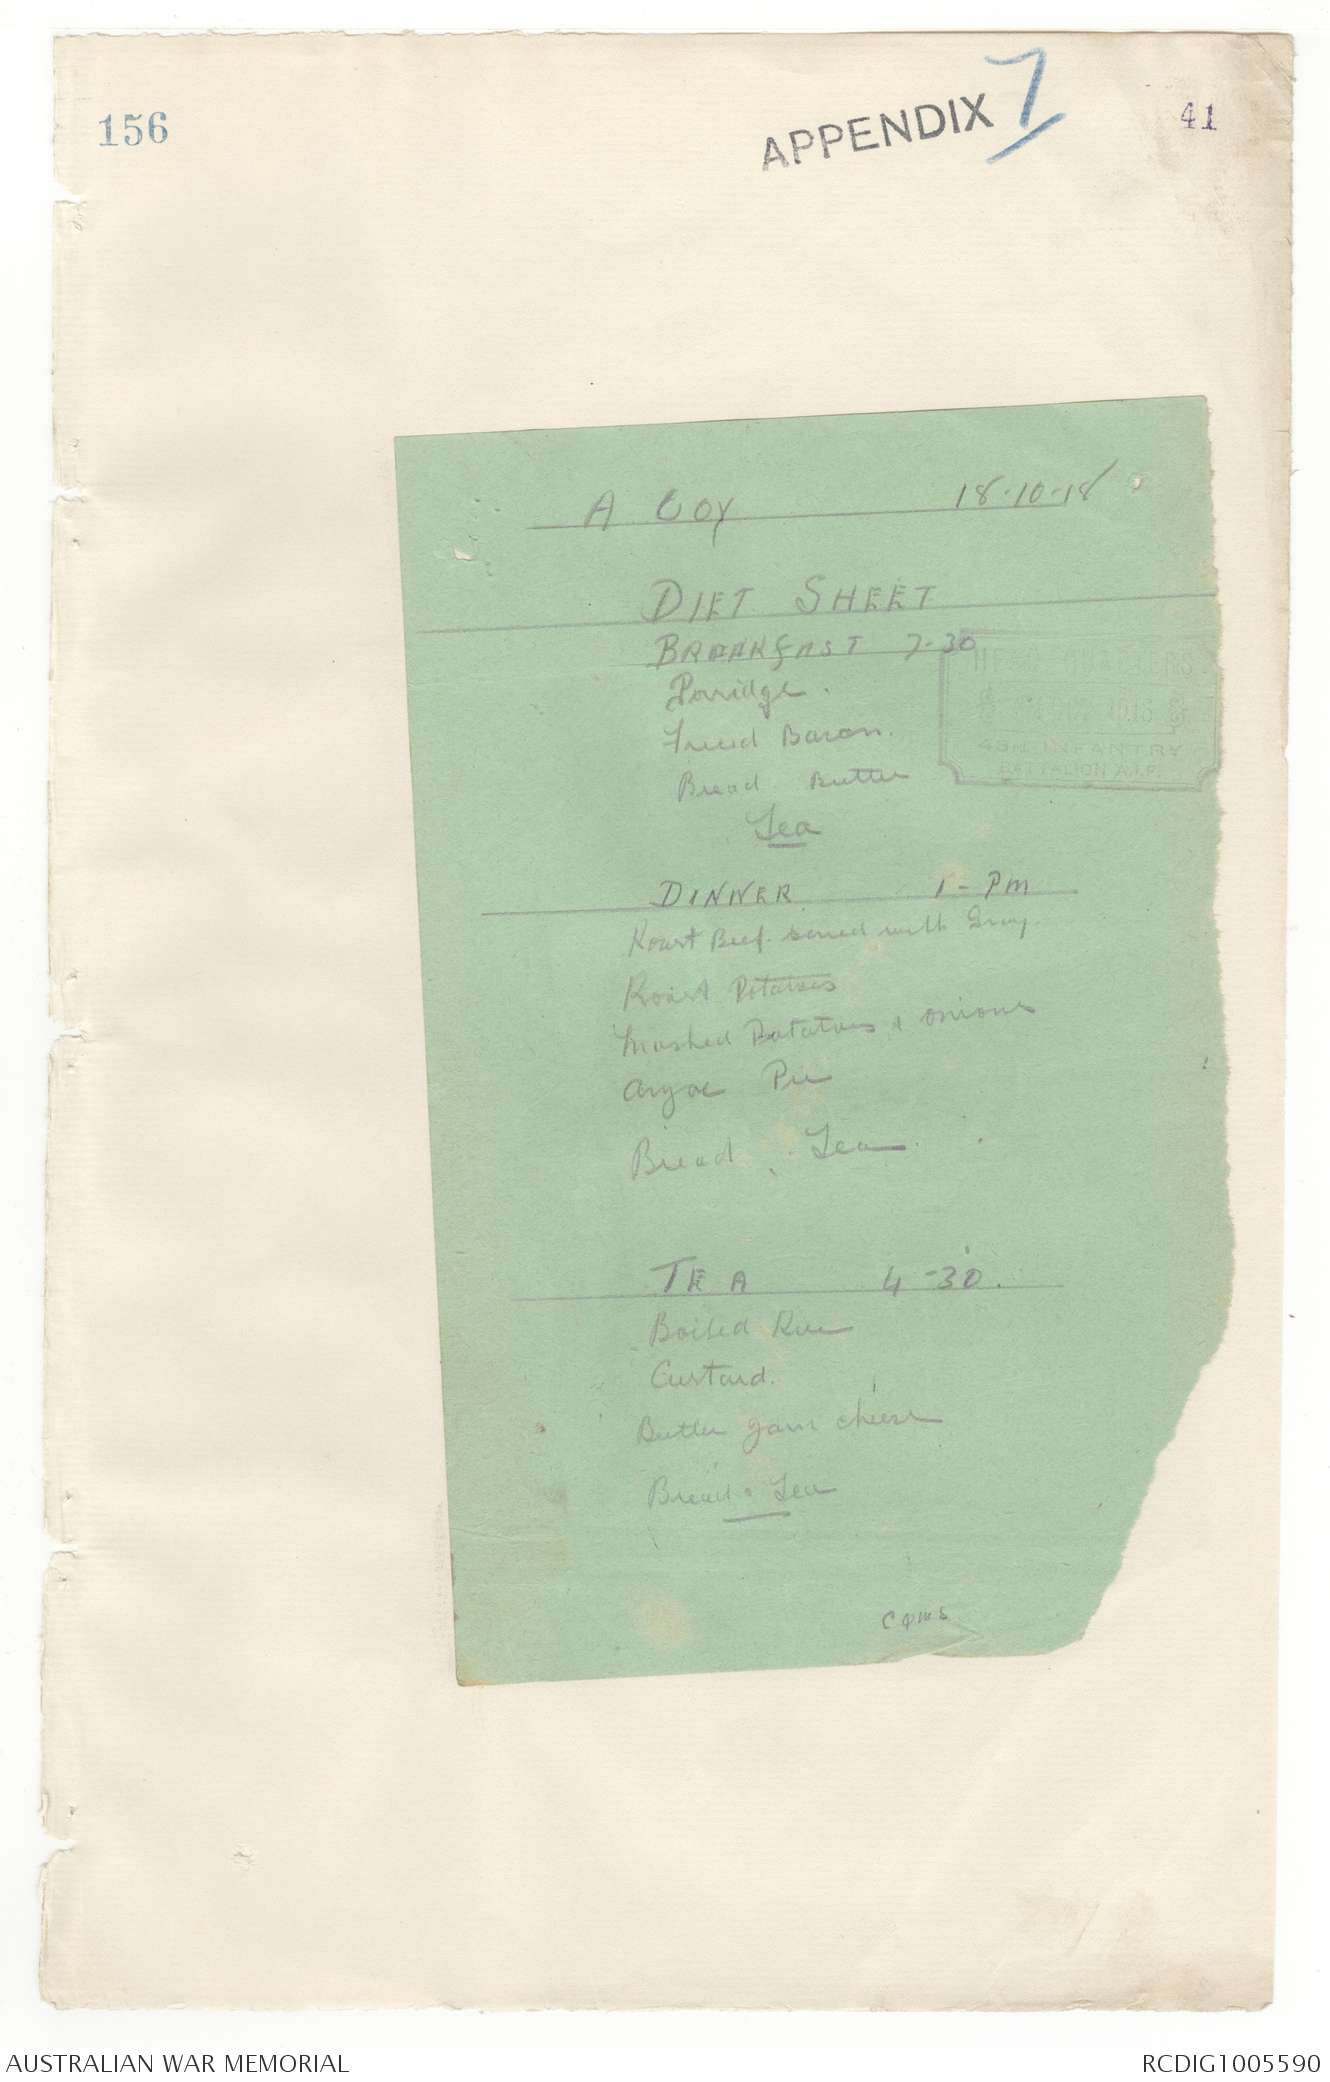 156
APPENDIX 7
41
A Coy 18-10-18
DIET SHEET
BREAKFAST 7-30
Porridge.
Fried Bacon.
Bread Butter
Tea
HEAD QUARTERS
1918
48TH INFANTRY
BATTALION A.I.F.
DINNER 1-PM
Roast Beef served with Gravy.
Roast Potatoes
Mashed Potatoes & onions
Pie
Bread. Tea.
TEA 4-30.
Boiled Rice
Custard.
Butter Jam cheese
Bread & Tea
CQMS
AUSTRALIAN WAR MEMORIAL
RCDIG1005590